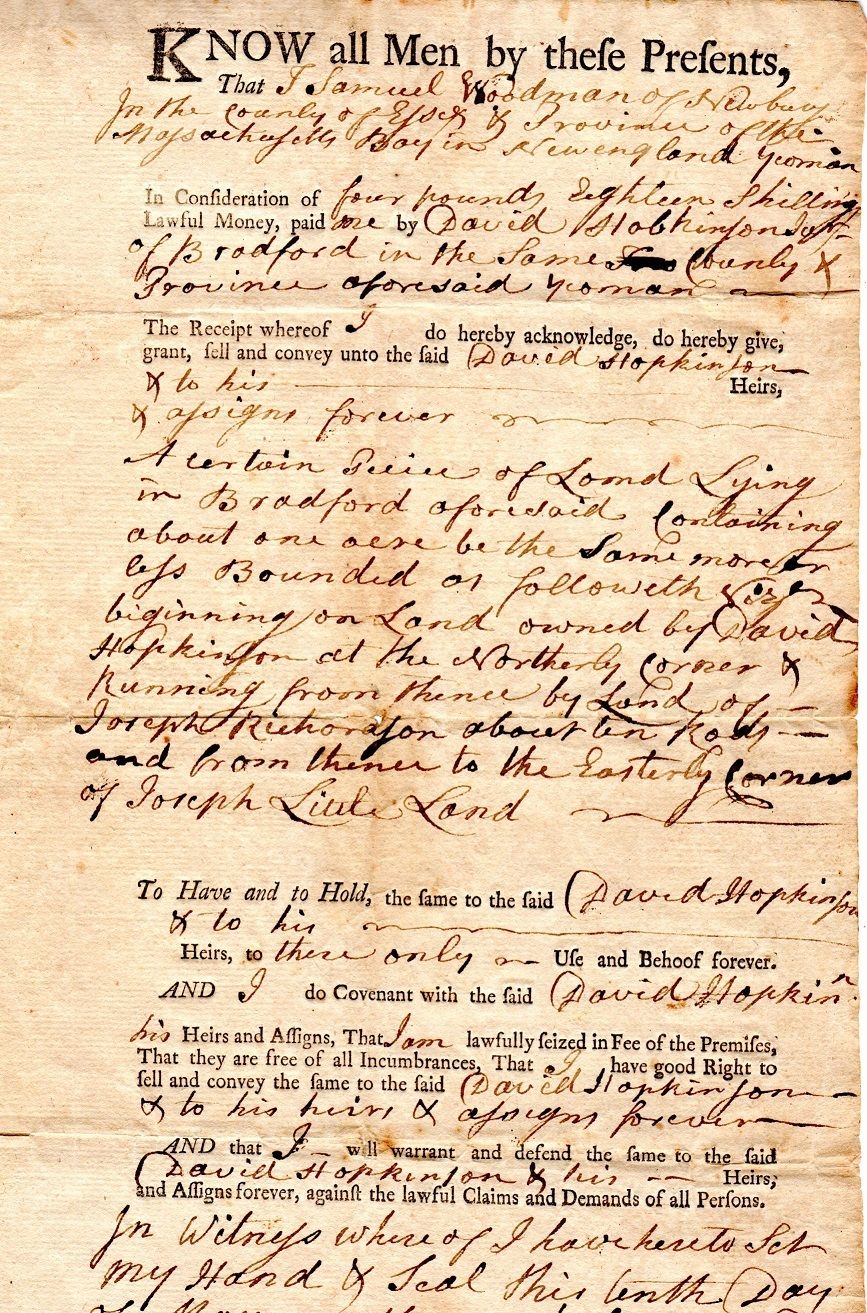 KNOW all Men by theſe Preſents,
That I Samuel Woodman of Newbury
In the County of Essex & Province of the
Massachusetts Bay in Newengland yeoman
In Conſideration of four pounds Eighteen Shilling
Lawful Money, paid me by David Hobkinson
of Bradford in the Same County &
Province aforesaid yeoman
The Receipt whereof I do hereby acknowledge, do hereby give,
grant, ſell and convey unto the ſaid David Hopkinson
& to his Heirs,
& assigns forever
A certain Peice of Land Lying
in Bradford aforesaid Containing
about one acre be the Same more or
less Bounded as followeth Viz
biginning on Land owned by David
Hopkinson at the Northerly Corner &
Running from thence by Land of
Joseph Richardson about ten Rods
and from thence to the Easterly Corner
of Joseph Little Land
To Have and to Hold, the ſame to the ſaid David Hopkinson
& to his
Heirs, to there only Uſe and Behoof forever.
AND I do Covenant with the ſaid David Hopkinn
his Heirs and Aſſigns, That I am lawfully ſeized in Fee of the Premiſes,
That they are free of all Incumbrances, That I have good Right to
ſell and convey the ſame to the ſaid David Hopkinson
& to his heirs & assigns forever
AND that I will warrant and defend the ſame to the ſaid
David Hopkinson & his Heirs,
and Aſſigns forever, againſt the lawful Claims and Demands of all Perſons.
In Witness where of I have hereto Set
my Hand & Seal this tenth Day